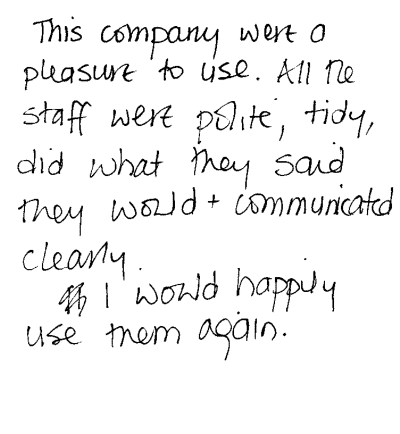 This company were a
pleasure to use. All the
staff were polite, tidy,
did what they said
they would + communicated
clearly.
I would happily
use them again.